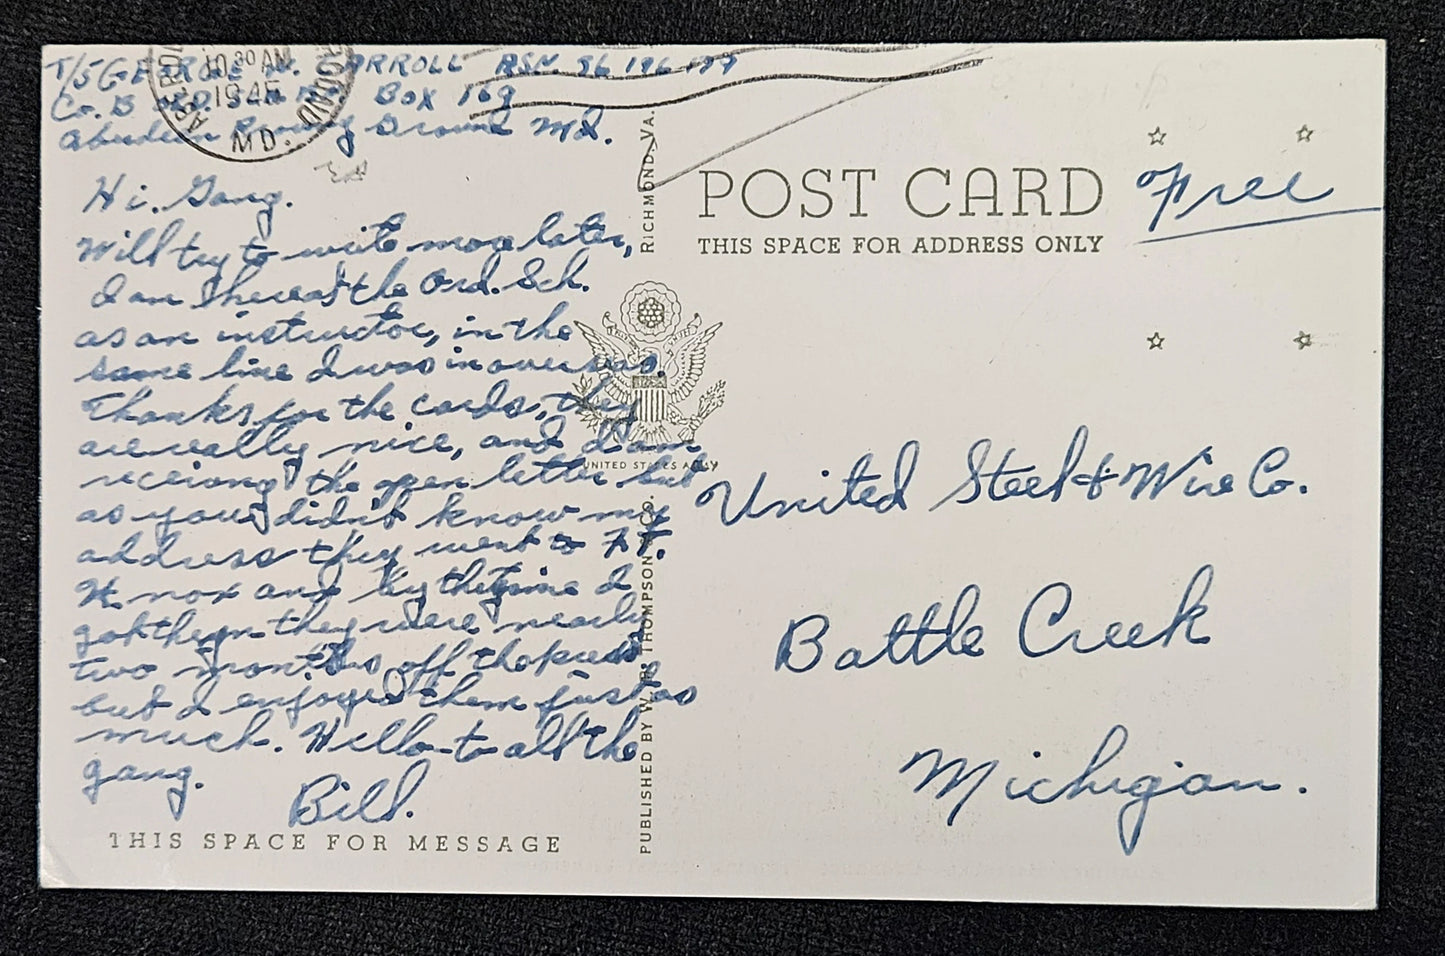 T/5 GEORGE W. CARROLL ASN. 36 196 199
Co. B Box 169
Aberdeen Proving Ground Md.
10 30 AM
1945
MD.
Hi. Gang.
Will try to write more later,
I am here at the Ord. Sch.
as an instructor, in the
same line I was in overseas.
Thanks for the cards, they
are really nice, and I am
receiving the open letter but
as you didn't know my
address they went to Ft.
Knox and by the time I
got them they were nearly
two months off the press
but I enjoyed them just as
much. Hello to all the
gang.
Bill.
THIS SPACE FOR MESSAGE
RICHMOND, VA.
UNITED STATES ARMY
PUBLISHED BY W. R. THOMPSON & CO.
POST CARD
THIS SPACE FOR ADDRESS ONLY
Free
United Steel & Wire Co.
Battle Creek
Michigan.